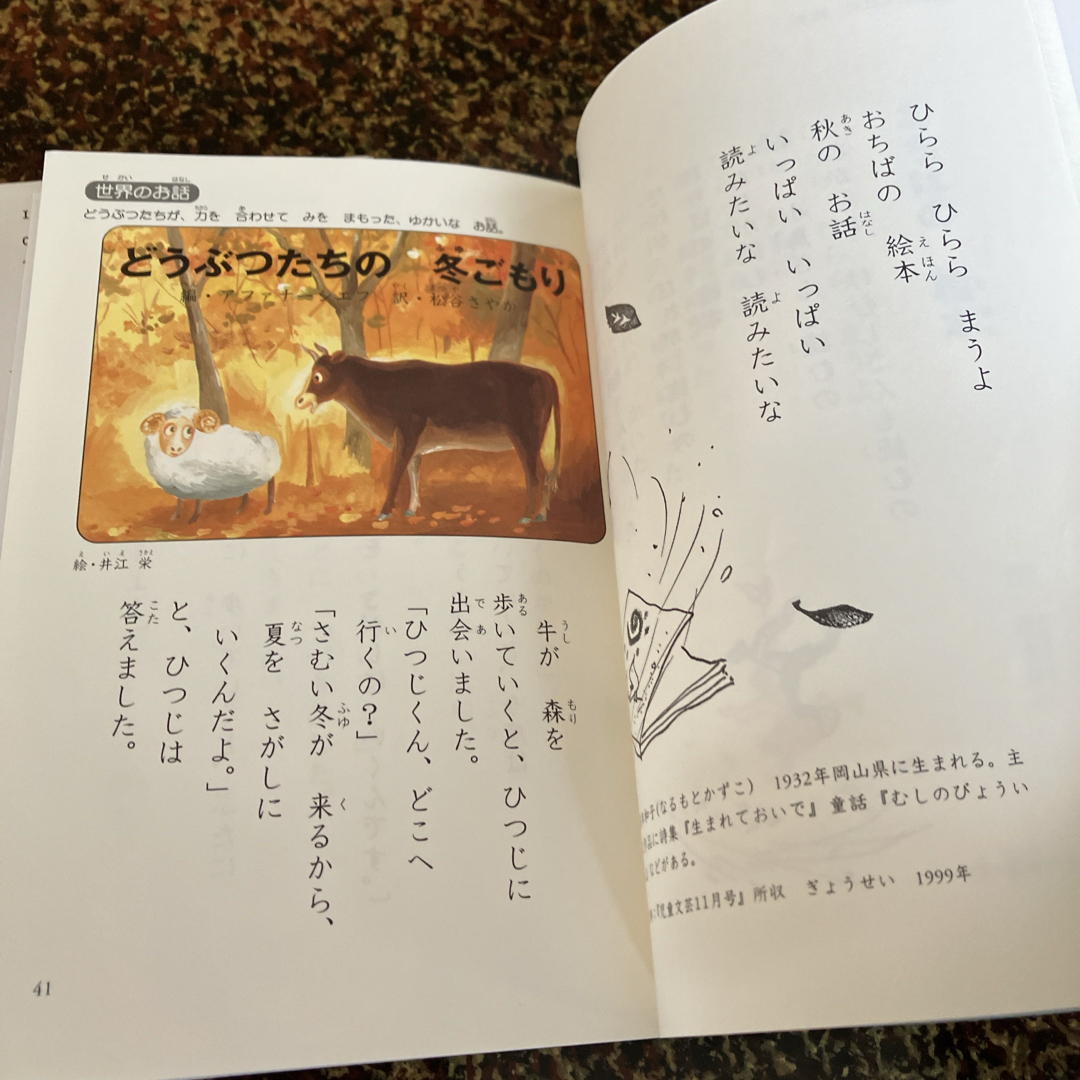 ひらら ひらら まうよ
おちばの 絵本
秋の お話
いっぱい いっぱい
読みたいな 読みたいな
和子(なるもとかずこ) 1932年岡山県に生まれる。主
品に詩集『生まれておいで』 童話『むしのびょうい
などがある。
『児童文芸11月号』所収 ぎょうせい 1999年
世界のお話
どうぶつたちが、力を 合わせて みを まもった、ゆかいな お話。
どうぶつたちの 冬ごもり
編・アファナーシエフ 訳・松谷さやか
絵・井江 栄
牛が 森を
歩いていくと、ひつじに
出会いました。
「ひつじくん、どこへ
行くの?」
「さむい冬が 来るから、
夏を さがしに
いくんだよ。」
と、ひつじは
答えました。
41